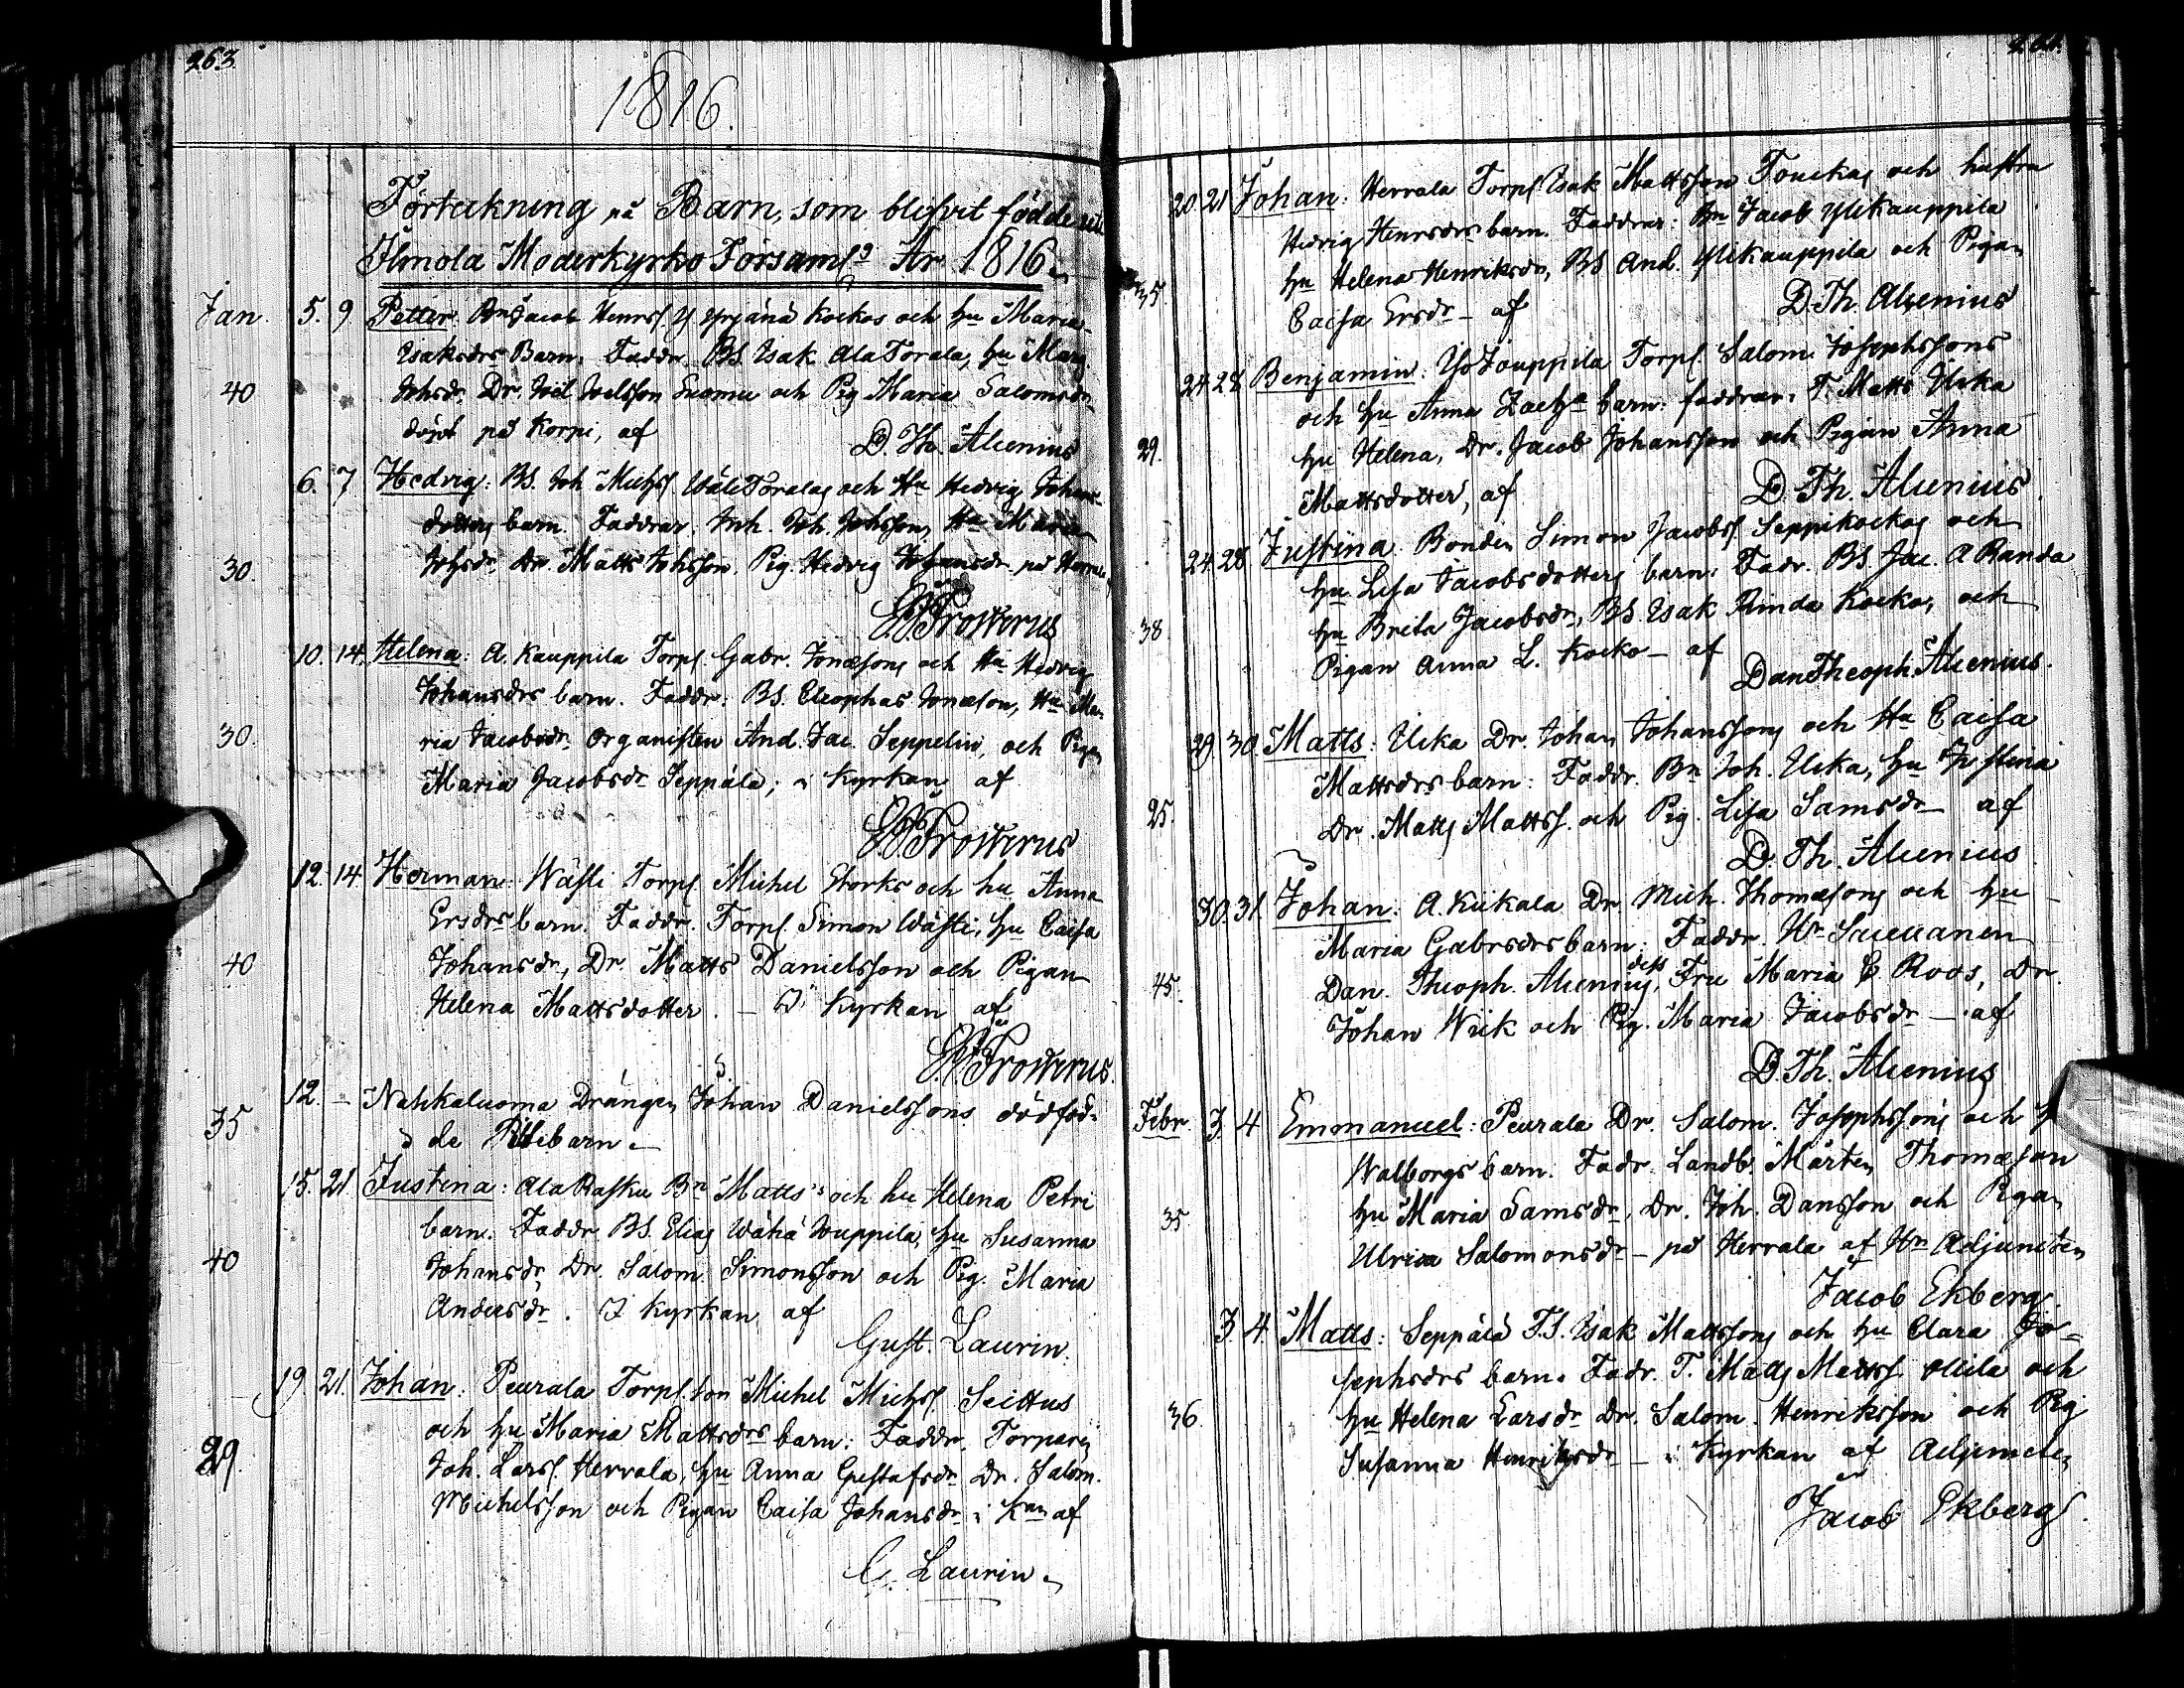 263.
1816.
Förteckning på Barn, som blifvit födde uti
Ilmola Moderkyrko Församlg År 1816.
Jan. 5. 9. Petter: Bn Jacob Henrs. Yrjänä Kockos och hu Maria
Isaksdrs Barn. Faddr. BS. Isak AlaTorala, hu Marg.
40 Johsdr. Dr. Joel Joelsson Suomu och Pig Maria Salomsdr
döpt på Korpi, af
D. Th. Alcenius
6. 7 Hedvig: BS. Joh Michs. WäliToralas och Hu Hedvig Johans-
dotters barn. Faddrar. Inh. Joh. Johsson, Hu Maria
30. Johsdr. Dr. Matts Johsson. Pig. Hedvig Johansdr. på Herrala
Frosterus
10. 14. Helena: A. Kauppila Torps. Gabr. Jonæsons och Hu Hedvig
Johansdrs barn. Faddr: BS. Cleophas Jonæson, Hu Ma-
30. ria Jacobsdr. Organisten And. Jac. Seppelin, och Pigan
Maria Jacobsdr Seppälä; i Kyrkan af
Frosterus
12. 14 Herman: Wästi Torps. Michel Storks och hu Anna
Ersdrs barn. Faddr. Torps. Simon Wästi, hu Caisa
40 Johansdr, Dr. Matts Danielsson och Pigan
Helena Mattsdotter. – I Kyrkan af
Frosterus.
12. – Nahkaluoma Drängen Johan Danielssons dödföd-
35 de Pittebarn.
15. 21 Justina: AlaRasku Bn Matts's och hu Helena Petri
barn. Faddr. BS. Elias Wähä Jouppila, hu Susanna
40 Johansdr, Dr. Salom. Simonsson och Pig. Maria
Andersdr. I kyrkan af
Gust. Laurin.
19. 21. Johan: Peurala Torps. son Michel Michs. Seittus
och hu Maria Mattsdrs barn: Faddr. Torparen
29. Joh. Larss. Herrala, hu Anna Gustafsdr. Dr. Salom.
Michelsson och Pigan Caisa Johansdr i Kan af
G. Laurin.
20 21 Johan: Herrala Torps. Isak Mattsson Touckas och hustru
Hedvig Henrsdrs barn. Faddrar: Bn Jacob Ylikauppila
35. hu Helena Henriksdr, BS And. Ylikauppila och Pigan
Caisa Ersdr – af
D. Th. Alcenius
24. 28 Benjamin: Jouppila Torps. Salom. Josephssons
och hu Anna Zachs barn: faddrar: T. Matts Ucka
29. hu Helena, Dr. Jacob Johansson och Pigan Anna
Mattsdotter, af
D. Th. Alcenius
24. 28 Justina: Bonden Simon Jacobs. Seppikockos och
hu Lisa Jacobsdotters barn: Fadr. BS Jac. A Randa
38. hu Brita Jacobsdr, BS. Isak Rinda Kocko, och
Pigan Anna L. Kocko – af
Dan Theoph. Alcenius.
29. 30. Matts: Ucka Dr. Johan Johanssons och Hu Caisa
Mattsdrs barn: Faddr. Bn Joh. Ucka, hu Justina
25. Dr. Matts Matts. och Pig. Lisa Samsdr – af
D. Th. Alcenius
30. 31. Johan: A. Kiikala Dr. Mich. Thomæsons och hu
Maria Gabrsdrs barn: Faddr. Hr Sacellanen
45. Dan. Theoph. Alcenius, dess Fru Maria C. Roos, Dr.
Johan Wiik och Pig. Maria Jacobsdr – af
D. Th. Alcenius
Febr. 3. 4 Emmanuel: Peurala Dr. Salom. Josephssons och
Walborgs barn. Fadr. Landb. Mårten Thomæson
35. hu Maria Samsdr, Dr. Joh. Dansson och Pigan
Ulrica Salomonsdr – på Herrala af Hr Adjuncten
Jacob Ekberg
3. 4. Matts: Seppälä T.S. Isak Mattssons och hu Clara Jo-
sephsdrs barn. Fadr. T. Matts Matts. Ollila och
36. hu Helena Larsdr Dr. Salom. Henriksson och Pig
Susanna Henriksdr – i Kyrkan af Adjuncten
Jacob Ekberg.